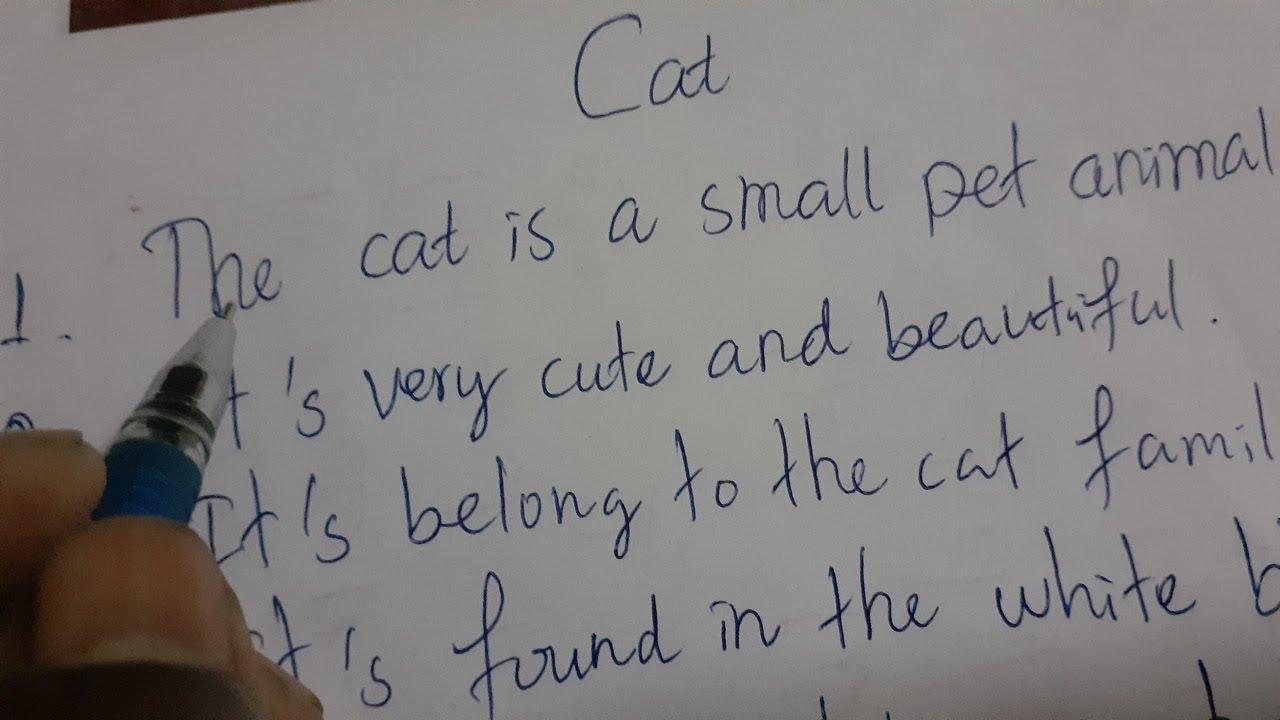 Cat
1. The cat is a small pet animal
It's very cute and beautiful.
It's belong to the cat
It's found in the white